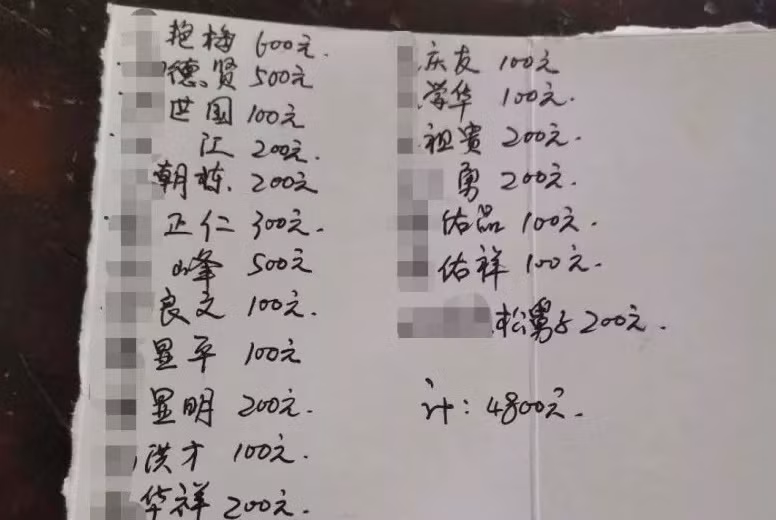 艳梅 600元.
德贤 500元
世国 100元
江 200元.
朝栋 200元
正仁 300元.
峰 500元
良文 100元.
显平 100元
显明 200元.
洪才 100元.
华祥 200元.
庆友 100元
学华 100元.
祖贵 200元.
勇 200元.
佑品 100元.
佑祥 100元.
松舅子 200元.
计: 4800元.